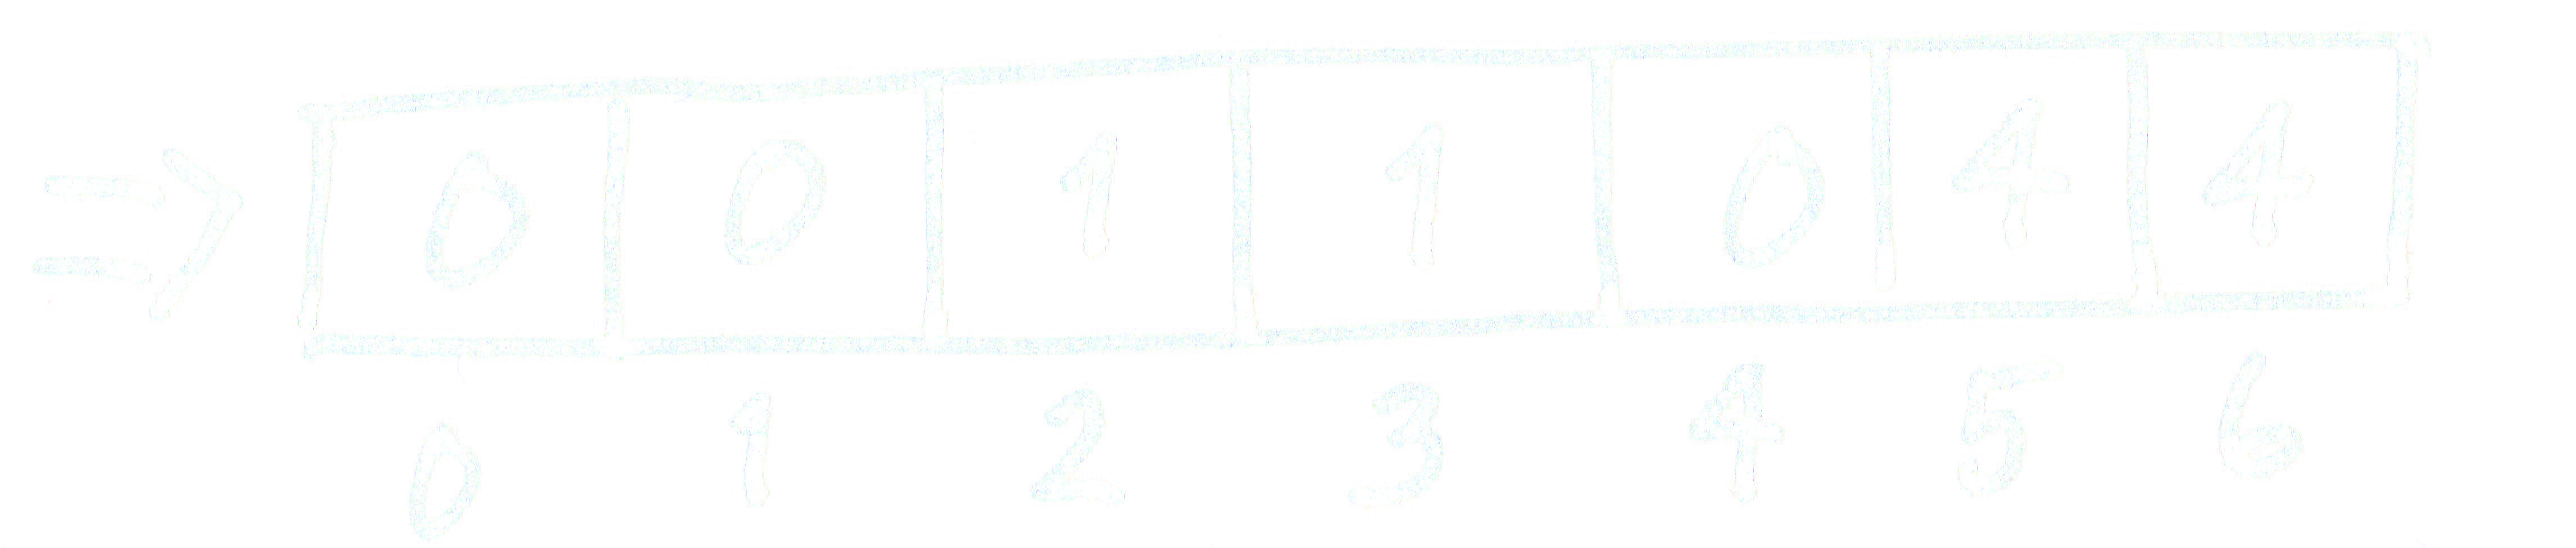 ⇒ 0 0 1 1 0 4 4
0 1 2 3 4 5 6